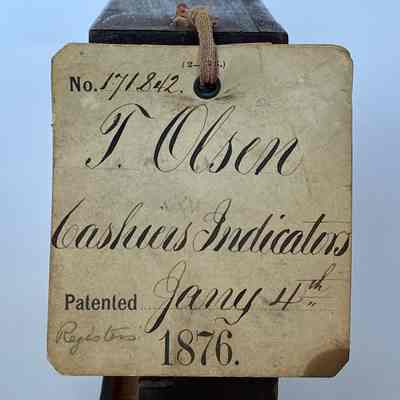 No. 171842.
T. Olsen
Cashiers Indicators
Patented Jany 4th
Registers
1876.